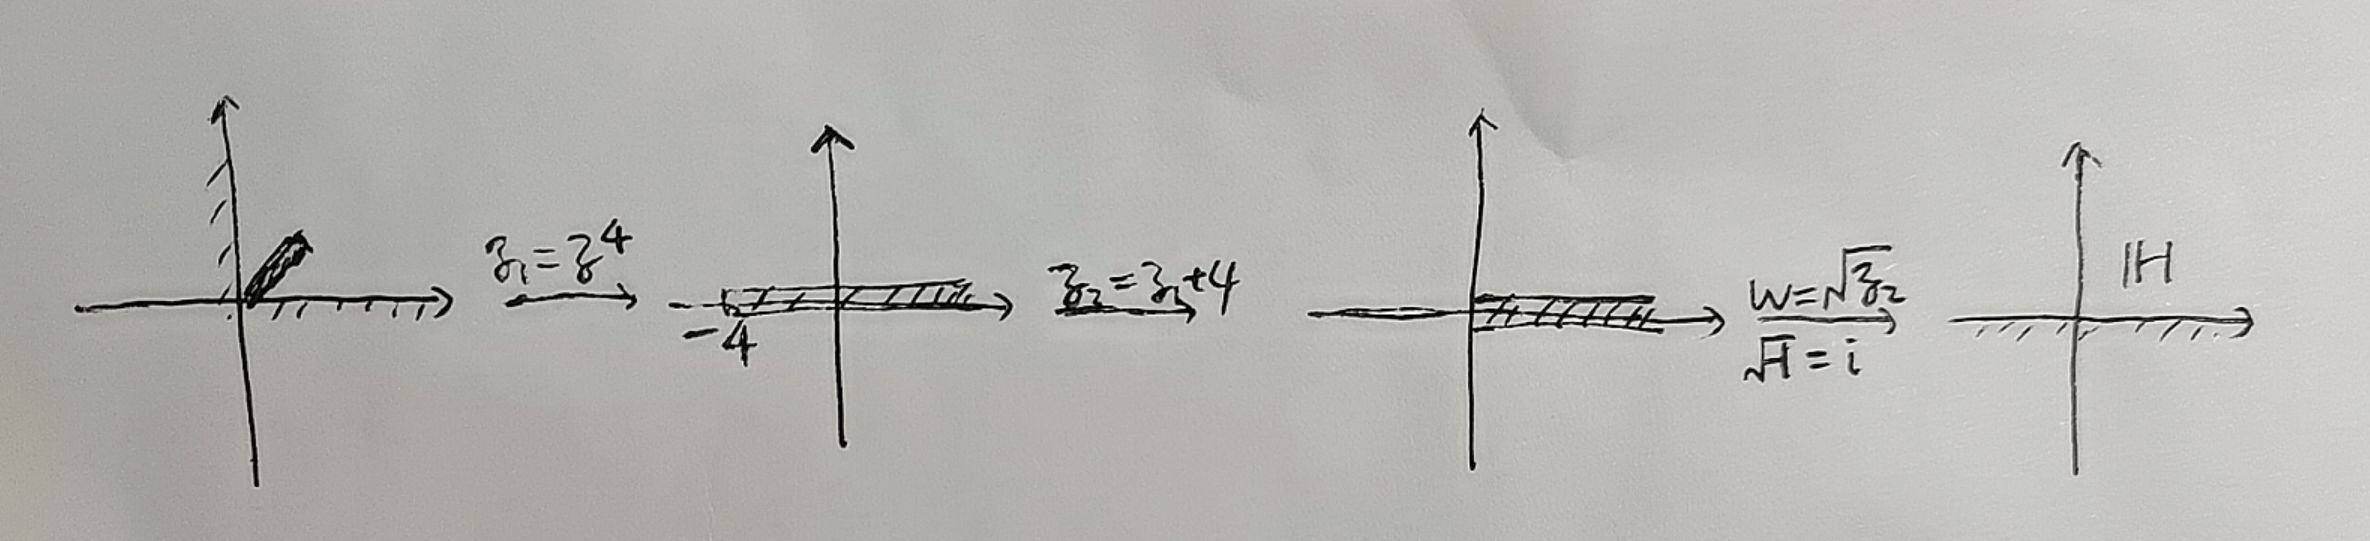 z₁=z⁴
-4
z₂=z₁+4
w=√z₂
√-1=i
ℍ